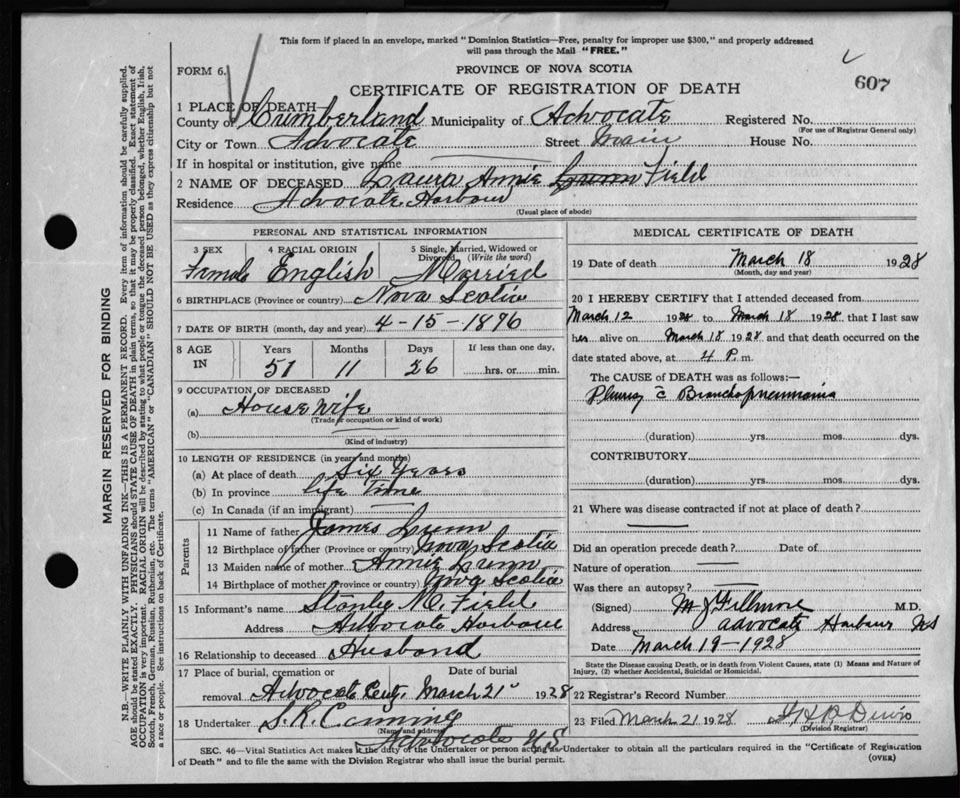 This form if placed in an envelope, marked "Dominion Statistics—Free, penalty for improper use $300," and properly addressed
will pass through the Mail "FREE."
FORM 6.
PROVINCE OF NOVA SCOTIA
607
CERTIFICATE OF REGISTRATION OF DEATH
1 PLACE OF DEATH—
County of Cumberland Municipality of Advocate Registered No.
(For use of Registrar General only)
City or Town Advocate Street Main House No.
If in hospital or institution, give name
2 NAME OF DECEASED Laura Annie Lunn Field
Residence Advocate Harbour
(Usual place of abode)
PERSONAL AND STATISTICAL INFORMATION
3 SEX 4 RACIAL ORIGIN 5 Single, Married, Widowed or
Divorced (Write the word)
Female English Married
6 BIRTHPLACE (Province or country) Nova Scotia
7 DATE OF BIRTH (month, day and year) 4-15-1876
8 AGE IN Years Months Days If less than one day,
51 11 26 hrs. or min.
9 OCCUPATION OF DECEASED
(a) House wife
(Trade occupation or kind of work)
(b)
(Kind of industry)
10 LENGTH OF RESIDENCE (in years and months)
(a) At place of death Six Years
(b) In province life Time
(c) In Canada (if an immigrant)
Parents
11 Name of father James Lunn
12 Birthplace of father (Province or country) Nova Scotia
13 Maiden name of mother Annie Lunn
14 Birthplace of mother (Province or country) Nova Scotia
15 Informant's name Stanley M. Field
Address Advocate Harbour
16 Relationship to deceased Husband
17 Place of burial, cremation or Date of burial
removal Advocate Cent. March 21 1928
18 Undertaker S. R.
(Name and address)
Advocate N S
MEDICAL CERTIFICATE OF DEATH
19 Date of death March 18 1928
(Month, day and year)
20 I HEREBY CERTIFY that I attended deceased from
March 12 1928 to March 18 1928, that I last saw
her alive on March 18 1928 and that death occurred on the
date stated above, at 4 P. m.
The CAUSE OF DEATH was as follows:—
Pleurisy c̄ Bronchopneumonia
(duration) yrs. mos. dys.
CONTRIBUTORY
(duration) yrs. mos. dys.
21 Where was disease contracted if not at place of death?
Did an operation precede death? Date of
Nature of operation
Was there an autopsy?
(Signed) M J Fillmore M.D.
Address Advocate Harbour NS
Date March 19-1928
State the Disease causing Death, or in death from Violent Causes, state (1) Means and Nature of
Injury, (2) whether Accidental, Suicidal or Homicidal.
22 Registrar's Record Number
23 Filed March 21 1928
(Division Registrar)
SEC. 46—Vital Statistics Act makes it the duty of the Undertaker or person acting as Undertaker to obtain all the particulars required in the "Certificate of Registration
of Death" and to file the same with the Division Registrar who shall issue the burial permit.
(OVER)
MARGIN RESERVED FOR BINDING
N.B.—WRITE PLAINLY WITH UNFADING INK—THIS IS A PERMANENT RECORD. Every item of information should be carefully supplied.
AGE should be stated EXACTLY. PHYSICIANS should STATE CAUSE OF DEATH in plain terms, so that it may be properly classified. Exact statement of
OCCUPATION is very important. RACIAL ORIGIN will be described by stating to what people or tongue the deceased person belonged, whether English, Irish,
Scotch, French, German, Russian, Ruthenian, etc. The terms "AMERICAN" or "CANADIAN" SHOULD NOT BE USED as they express citizenship but not
a race or people. See instructions on back of Certificate.